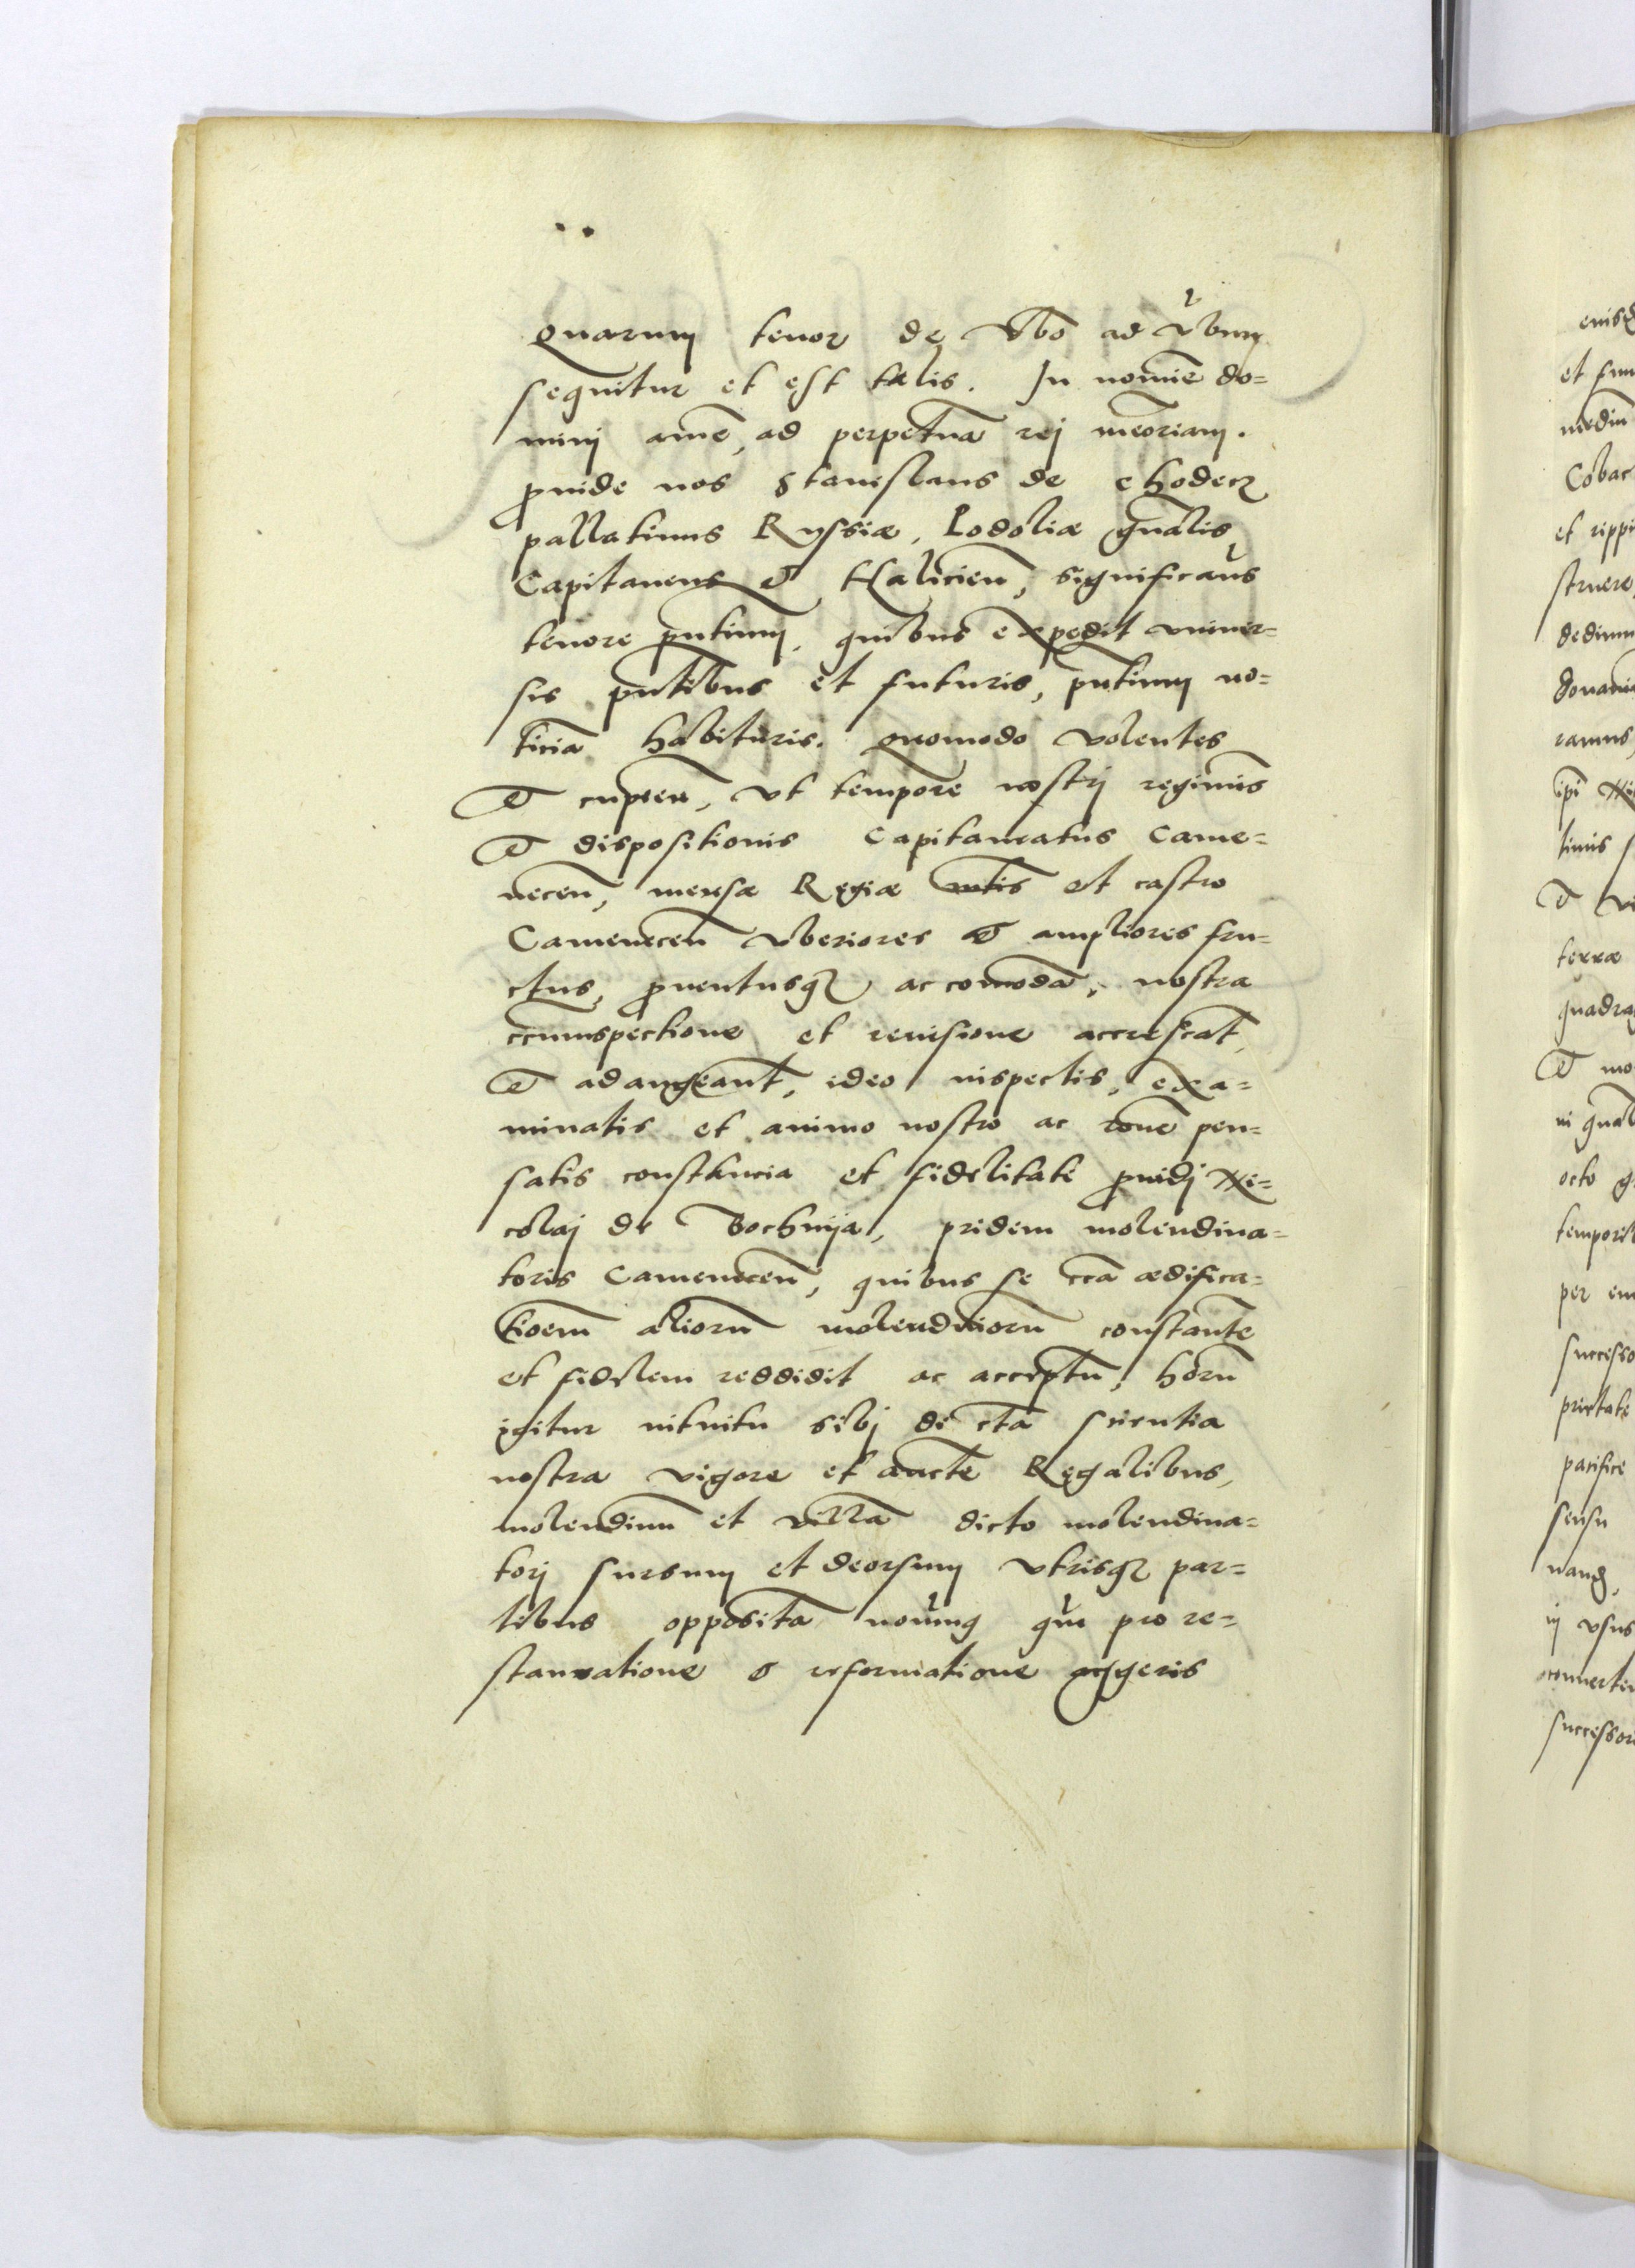 quarum tenor de vbo ad vbum
sequitur et est talis. In nomie do=
minj ame, ad perpetua rej meoriam.
proinde nos Stanislaus de Chodecz
pallatinus Russiæ, Podoliæ gnalis
Capitaneus et Halicien, significams
tenore pntium, quibus expedit vniuer=
sis pntibus et futuris, pntium no=
ticia habituris. Quomodo volentes
et cupien, vt tempore nostrj regimis
et dispositionis Capitaneatus Came=
necen, mensæ Regiæ mtis et castro
Camenecen vberiores et ampliores fru=
ctus, prouentusq ac comoda, nostra
ccumspectione et reuisione accrescat,
et adaugeant, ideo inspectis, exa=
minatis et animo nostro ac rone pen=
satis constancia et fidelitate prouidj Ni=
colaj de Bochnija, pridem molendina=
toris Camenecen, quibus se cca ædifica=
tioem aliorum molendinorum constante
et fidelem reddidit ac acceptu, horum
igitur intuitu sibj de cta scientia
nostra vigore et aucte Regalibus,
molendinu et villa dicto molendina=
torj sursum et deorsum vtrisq par=
tibus opposita nouimq qui pro re=
stauratione et reformatione aggeris
eiusd
et fun
medin
Cobar
et rippi
struere
dedimu
donami
ramus
ipi Ni
timis
et
terræ
quadrag
et mo
in gnal
octo g
temporib
per eu
successo
prietate
pacifice
sensu
nang,
in vsus
conuerten
successor